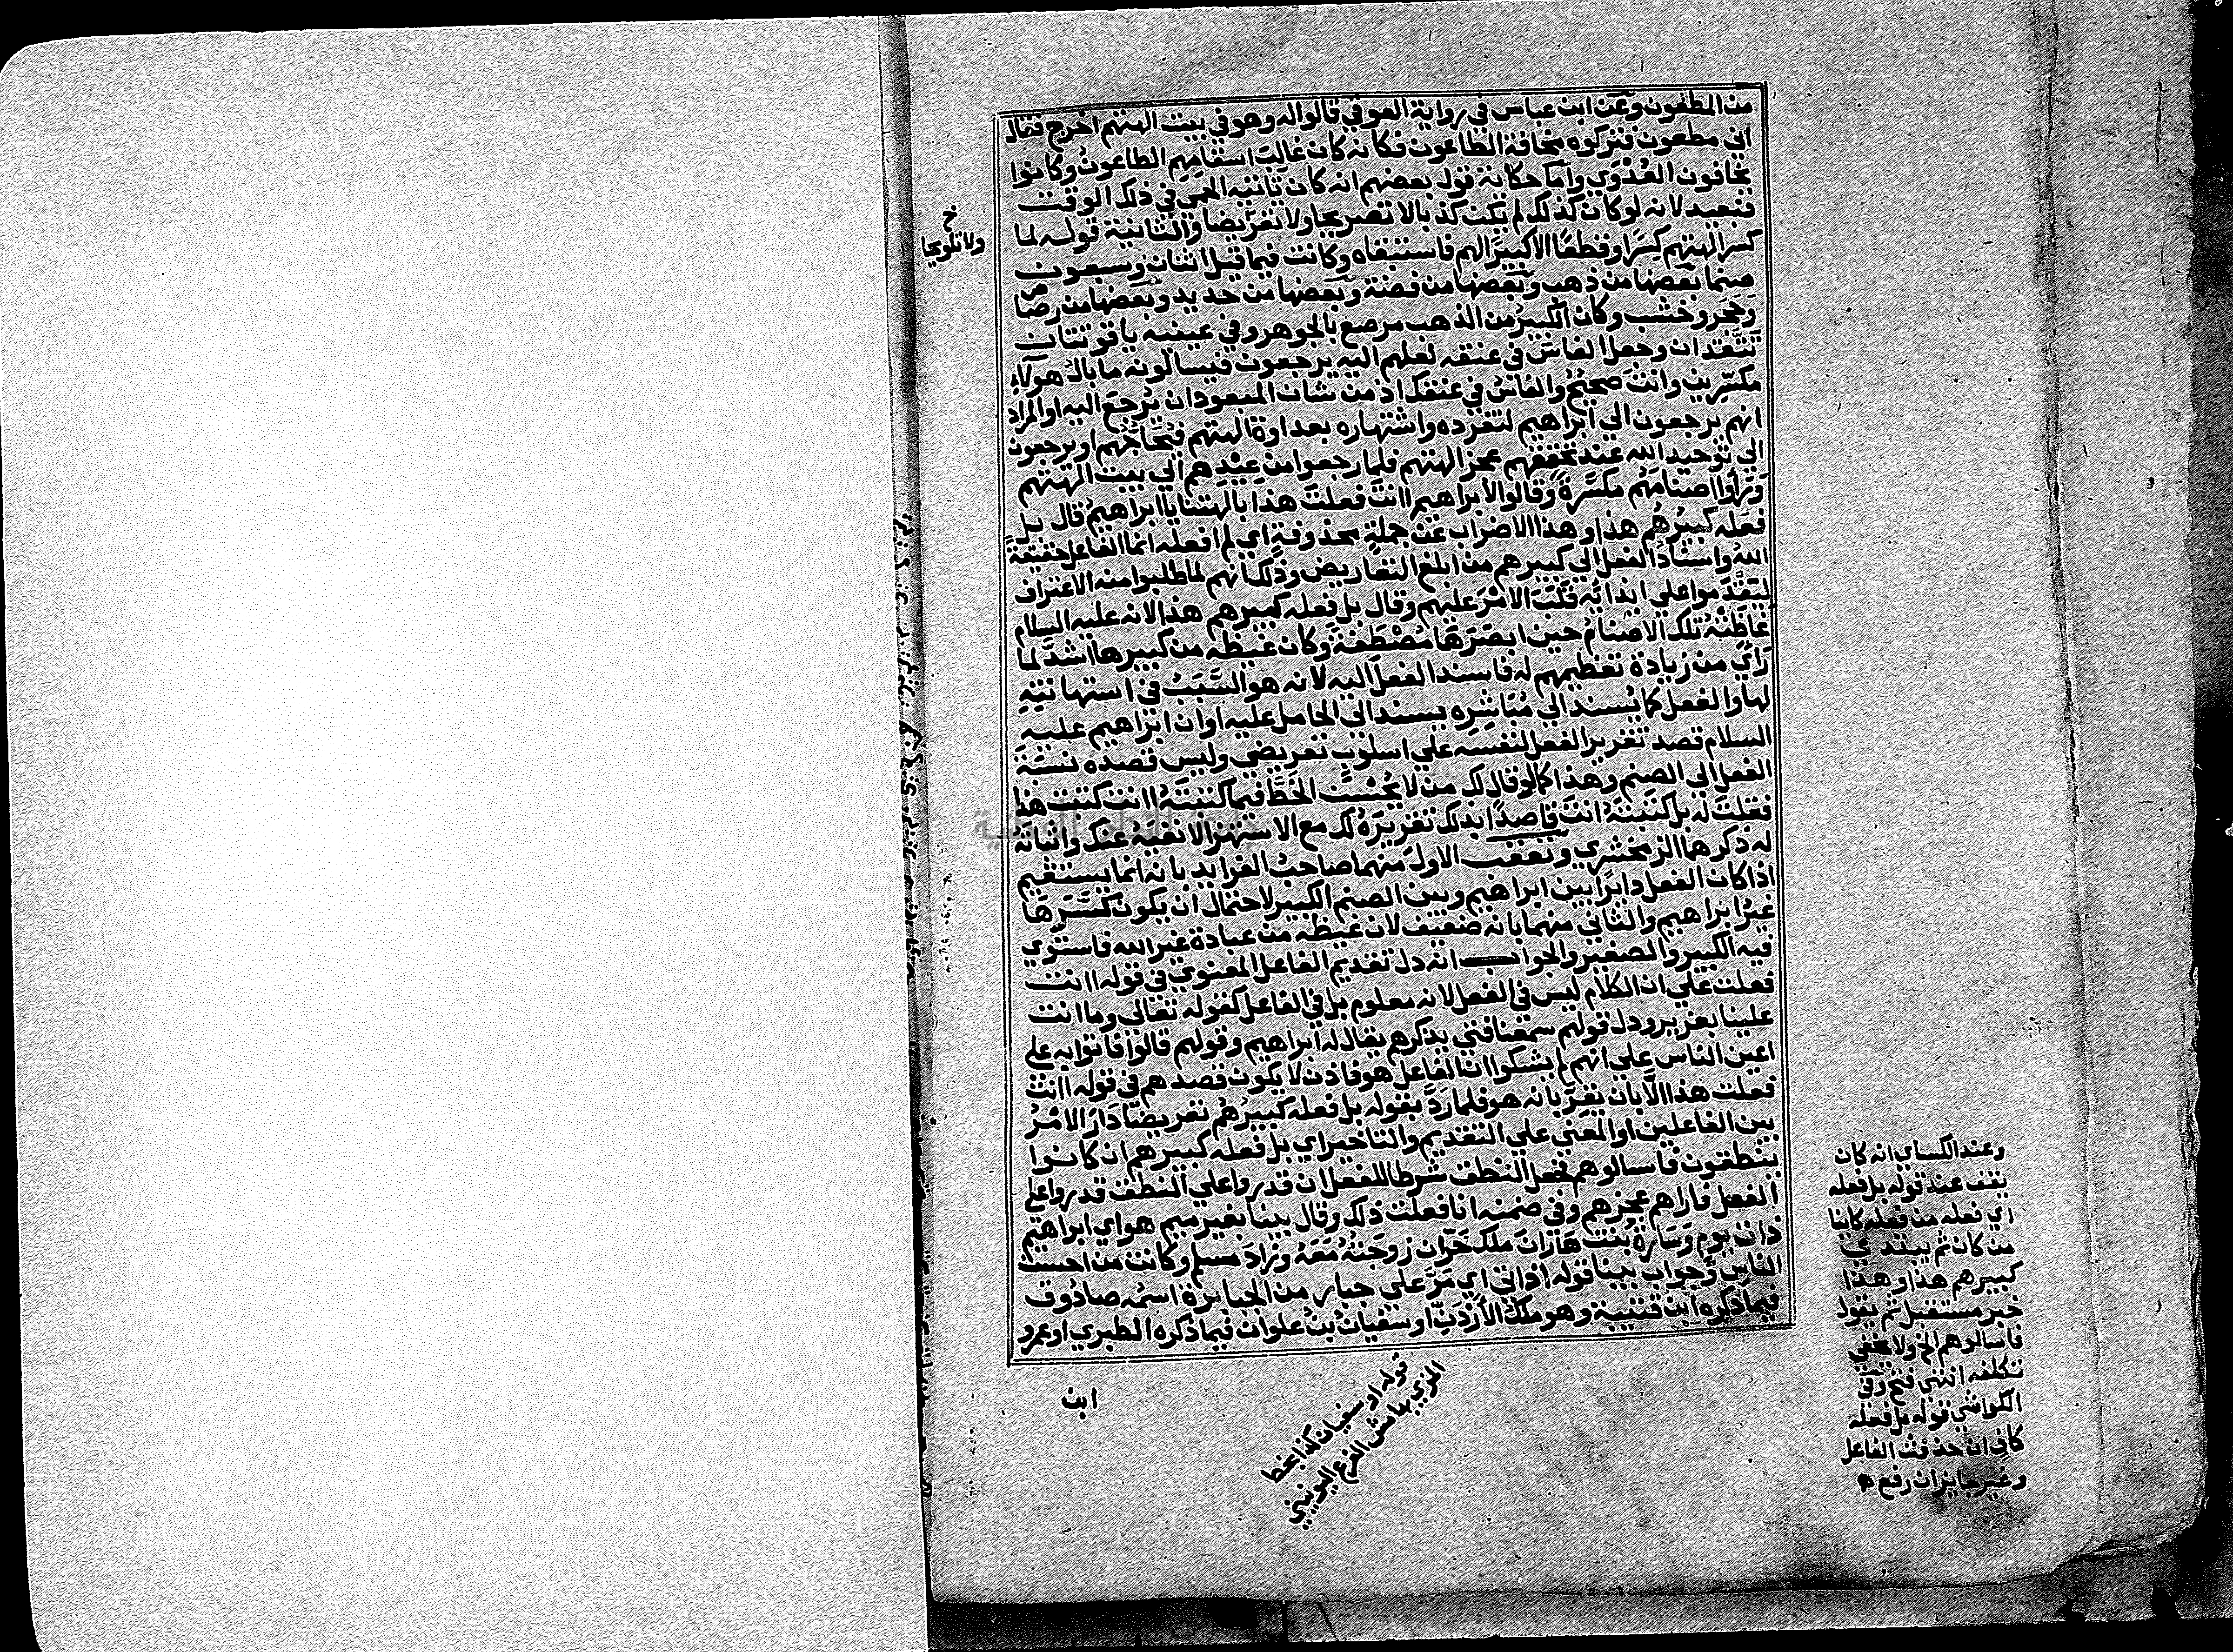 من المطعون وعن ابن عباس في رواية العوفي قالوا له وهو في بيت الهتهم اخرج فقال
اني مطعون فتركوه مخافة الطاعون فكانه كان غالب اسقامهم الطاعون وكانوا
يخافون العدوي واما حكاية قول بعضهم انه كان تاتيه الحمي في ذلك الوقت
فبعيد لانه لو كان كذلك لم يكن كذبا لا تصريحا ولا تعريضا والثانية قوله لما
كسر الهتهم كسرا وقطعا الا كبيرا لهم فاستبقاه وكانت فيما قيل اثنان وسبعون
صنما بعضها من ذهب وبعضها من فضة وبعضها من حديد وبعضها من رصاص
وحجر وخشب وكان الكبير من الذهب مرصع بالجوهر وفي عينيه ياقوتتان
تتقدان وجعل الفاس في عنقه لعلهم اليه يرجعون فيسالونه ما بال هولاء
مكسرين وانت صحيح والفاس في عنقك اذ من شان المعبود ان يرجع اليه او المراد
انهم يرجعون الي ابراهيم لتفرده واشتهاره بعداوة الهتهم فيحاجهم او يرجعون
الي توحيد الله عند تحققهم عجز الهتهم فلما رجعوا من عيدهم الي بيت الهتهم
وراوا اصنامهم مكسرة وقالوا لابراهيم اانت فعلت هذا بالهتنا يا ابراهيم قال بل
فعله كبيرهم هذا وهذا الاضراب عن جملة محذوفة اي لم افعله انما الفاعل حقيقة
الله واسناد الفعل الي كبيرهم من ابلغ التعاريض وذلك انهم لما طلبوا منه الاعتراف
ليقدموا علي ايذائه قلب الامر عليهم وقال بل فعله كبيرهم هذا لانه عليه السلام
غاظته تلك الاصنام حين ابصرها مصطفة وكان غيظه من كبيرها اشد لما
راي من زيادة تعظيمهم له فاسند الفعل اليه لانه هو السبب في استهانته
لها والفعل كما يسند الي مباشره يسند الي الحامل عليه او ان ابراهيم عليه
السلام قصد تقرير الفعل لنفسه علي اسلوب تعريضي وليس قصده نسبة
الفعل الي الصنم وهذا كما لو قال لك من لا يحسن الخط فيما كتبته اانت كتبت هذا
فقلت له بل كتبته انت قاصدا بذلك تقريره لك مع الاستهزا لا نفيه عنك واثباته
له ذكرهما الزمخشري وتعقب الاول منهما صاحب الفرايد بانه انما يستقيم
اذا كان الفعل دايرا بين ابراهيم وبين الصنم الكبير لاحتمال ان يكون كسرها
غير ابراهيم والثاني منهما بانه ضعيف لان غيظه من عبادة غير الله فاستوي
فيه الكبير والصغير والجواب انه دل تقديم الفاعل المعنوي في قوله اانت
فعلت علي ان الكلام ليس في الفعل لانه معلوم بل في الفاعل كقوله تعالي وما انت
علينا بعزيز ودل قولهم سمعنا فتي يذكرهم يقال له ابراهيم وقولهم قالوا فاتوا به علي
اعين الناس علي انهم لم يشكوا ان الفاعل هو فاذن لا يكون قصدهم في قوله اانت
فعلت هذا الا بان يقر بانه هو فلما رد بقوله بل فعله كبيرهم تعريضا دار الامر
بين الفاعلين او المعني علي التقديم والتاخير اي بل فعله كبيرهم ان كانوا
ينطقون فاسالوهم فجعل النطق شرطا للفعل ان قدروا علي النطق قدروا علي
الفعل فاراهم عجزهم وفي ضمنه انا فعلت ذلك وقال بينا بغير ميم هو اي ابراهيم
ذات يوم وسارة بنت هاران ملك حران زوجته معه وزاد مسلم وكانت من احسن
الناس وجواب بينا قوله اذ اتي اي مر علي جبار من الجبابرة اسمه صادوف
فيما ذكره ابن قتيبة وهو ملك الاردن او سفيان بن علوان فيما ذكره الطبري او عمرو
ابن
خ
ولا تلويحا
وعند الكساي انه كان
يقف عند قوله بل فعله
اي فعله من فعله كاينا
من كان ثم يبتدي
كبيرهم هذا وهذا
خبر مستقبل ثم يقول
فاسالوهم الخ ولا يخفي
تكلفه انتهي فتح وفي
الكواشي قوله بل فعله
كافٍ ان حذفت الفاعل
وغير جايز ان رفع ه
قوله او سفيان كذا بخط
المزي بهامش الفرع اليونيني